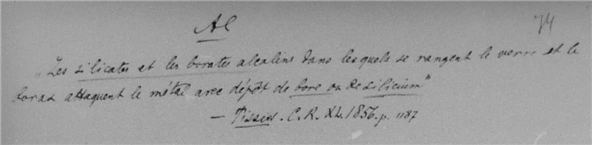 Al
74
„Les silicates et les borates alcalins dans lesquels se rangent le verre et le
borax attaquent le métal avec dépôt de bore ou de silicium"
— Tissier. C. R. XL. 1856. p. 1187